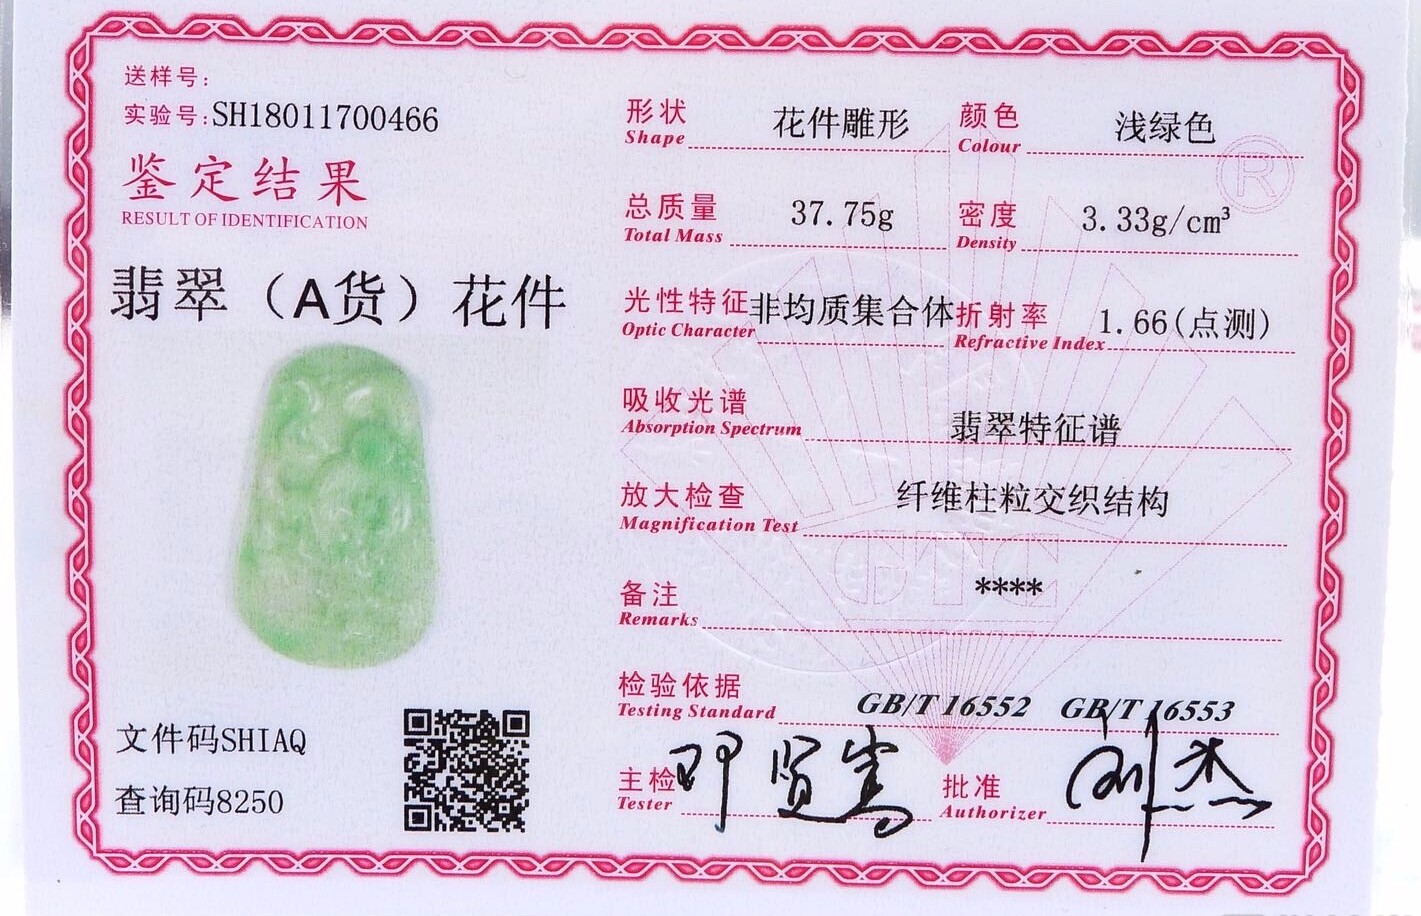 送样号:
实验号:SH18011700466
鉴定结果
RESULT OF IDENTIFICATION
翡翠（A货）花件
文件码SHIAQ
查询码8250
形状 花件雕形 颜色 浅绿色
Shape Colour
®
总质量 37.75g 密度 3.33g/cm³
Total Mass Density
光性特征 非均质集合体 折射率 1.66(点测)
Optic Character Refractive Index
吸收光谱 翡翠特征谱
Absorption Spectrum
放大检查 纤维柱粒交织结构
Magnification Test
GTC
备注 ****
Remarks
检验依据 GB/T 16552 GB/T 16553
Testing Standard
主检 批准
Tester Authorizer